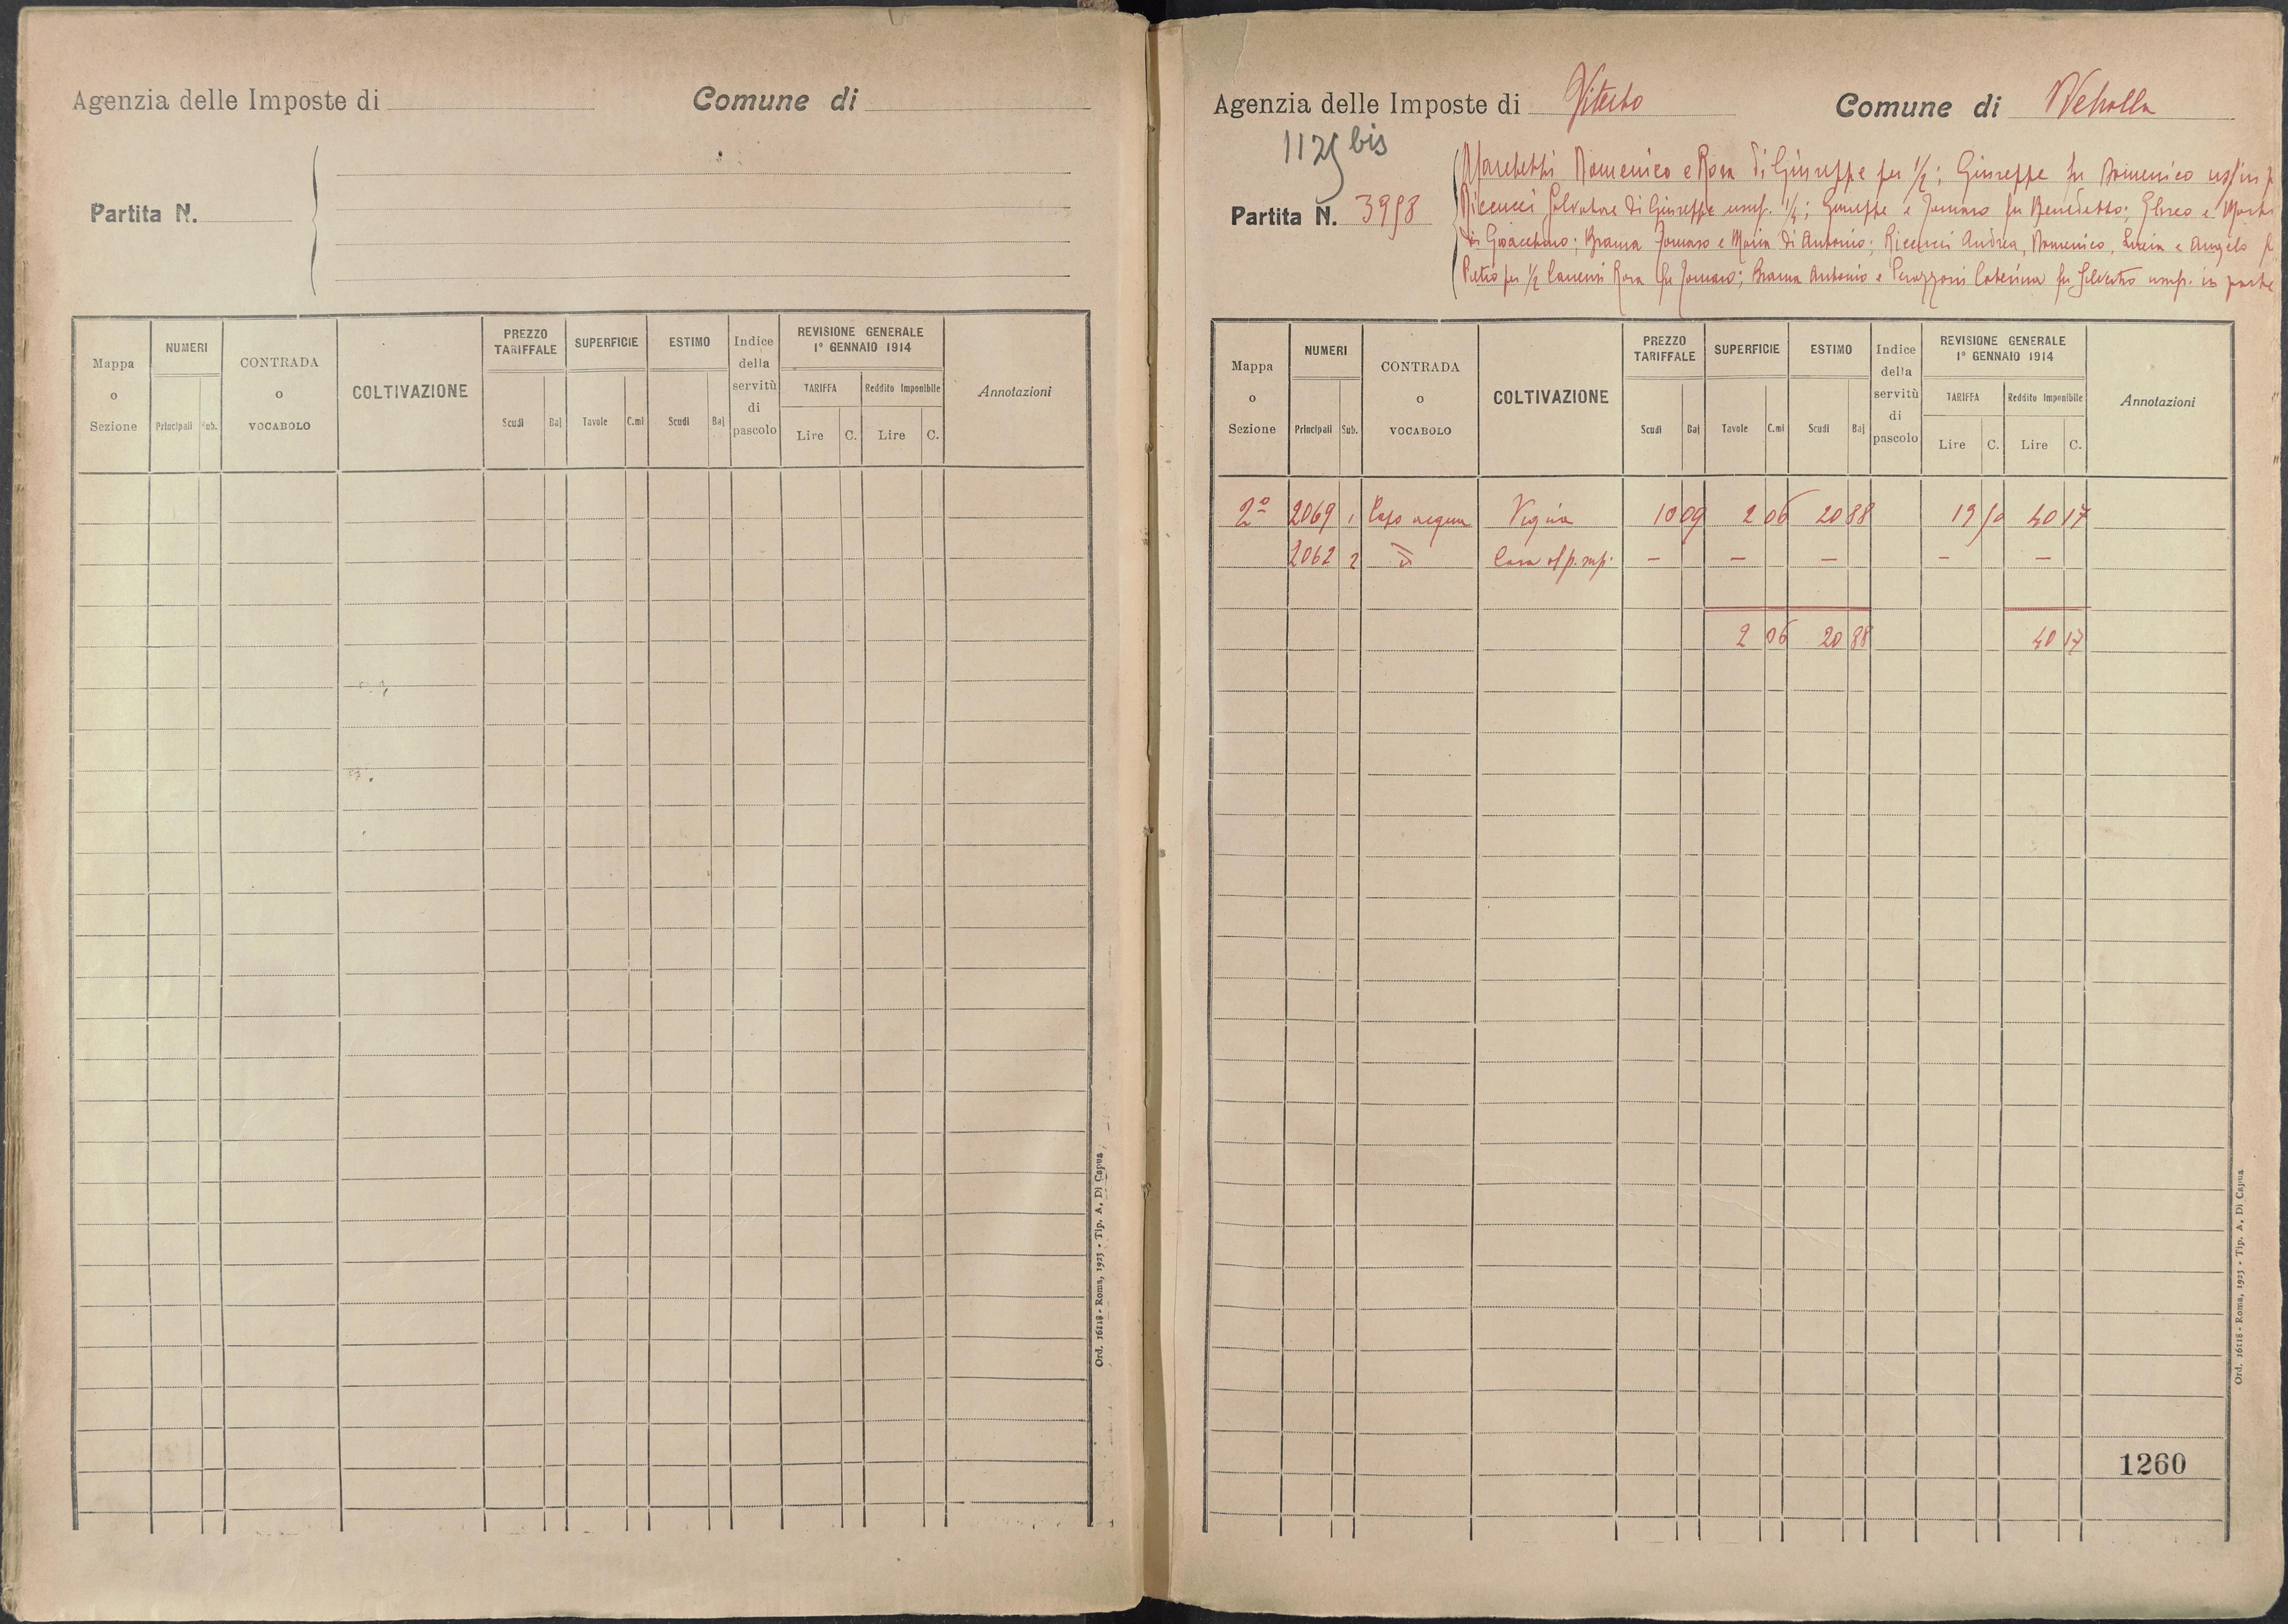 Agenzia delle Imposte di
Comune di
Partita N.
Mappa o Sezione
NUMERI
Principali Sub.
CONTRADA o VOCABOLO
COLTIVAZIONE
PREZZO TARIFFALE
Scudi Baj
SUPERFICIE
Tavole C.mi
ESTIMO
Scudi Baj
Indice della servitù di pascolo
REVISIONE GENERALE
1° GENNAIO 1914
TARIFFA Reddito Imponibile
Lire C. Lire C.
Annotazioni
Ord. 16118 - Roma, 1923 - Tip. A. Di Capua
Agenzia delle Imposte di Viterbo
Comune di Vetralla
bis
Partita N.
Marchetti Domenico e Rosa di Giuseppe per 1/2; Giuseppe fu Domenico
Ricucci Salvatore di Giuseppe usuf. Giuseppe e Tomaso fu Benedetto;
di Gioacchino; Brama Tomaso e Maria di Antonio; Ricucci Andrea, Domenico, Lucia e Angelo
Pietro per 1/2 Canensi Rosa fu Tomaso; Brama Antonio e Perazzoni Caterina fu Silvestro usuf. in parte
Mappa o Sezione
NUMERI
Principali Sub.
CONTRADA o VOCABOLO
COLTIVAZIONE
PREZZO TARIFFALE
Scudi Baj
SUPERFICIE
Tavole C.mi
ESTIMO
Scudi Baj
Indice della servitù di pascolo
REVISIONE GENERALE
1° GENNAIO 1914
TARIFFA Reddito Imponibile
Lire C. Lire C.
Annotazioni
2a 2069 1 Capo acqua Vigna 10 09 2 06 20 88 19 50 40 17
2062 2 Casa - - - - -
2 06 20 88 40 17
1260
Ord. 16118 - Roma, 1923 - Tip. A. Di Capua